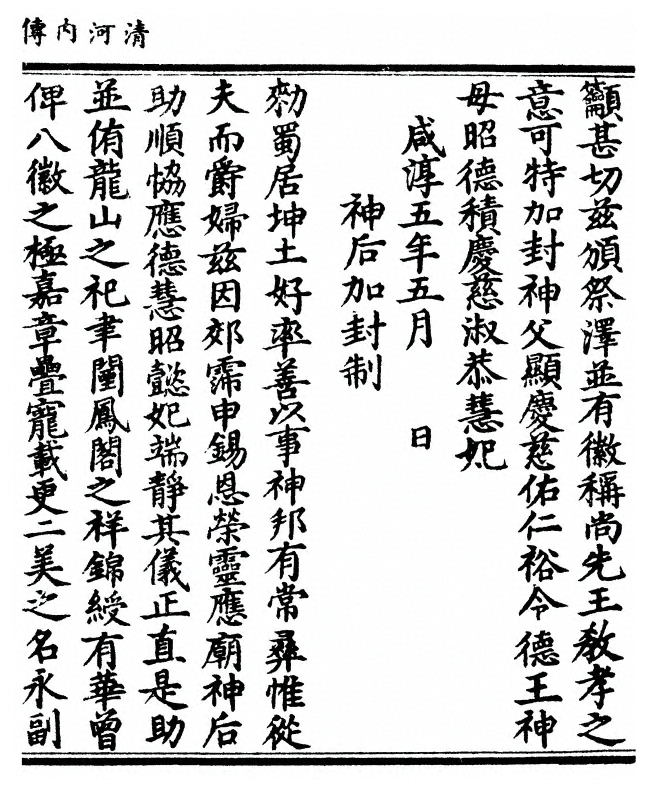 清河內傳
籲甚切兹頒祭澤並有徽稱尚先王教孝之
意可特加封神父顯慶慈佑仁裕令德王神
母昭德積慶慈淑恭慧妃
咸淳五年五月　　日
神后加封制
勑蜀居坤土好率善以事神邦有常彛惟從
夫而爵婦兹因郊霈申錫恩榮靈應廟神后
助順恊應德慧昭懿妃端靜其儀正直是助
並侑龍山之祀聿闡鳳閣之祥錦綬有華曾
俾八徽之極嘉章疊寵載更二美之名永副